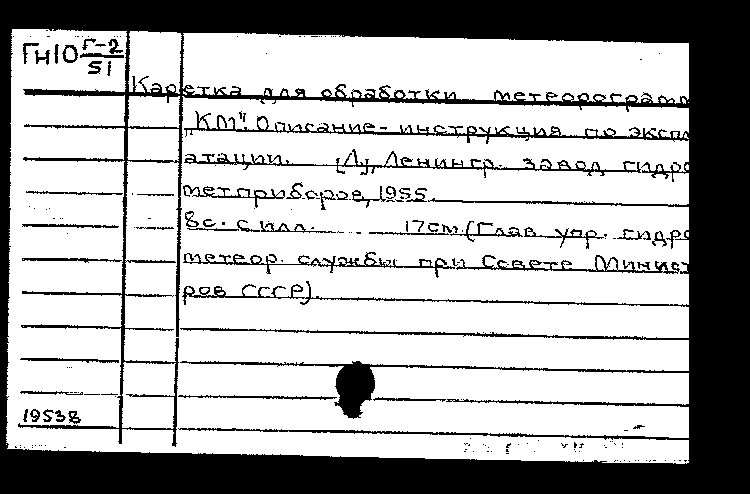 ГН10 Г-2/51
Каретка для обработки метеорограмм
„КМ". Описание-инструкция по экспл
атации. [Л], Ленингр. завод гидро
метприборов, 1955.
8с. с илл. 17см (Глав упр. гидро
метеор. службы при Совете Минист
ров СССР).
19538